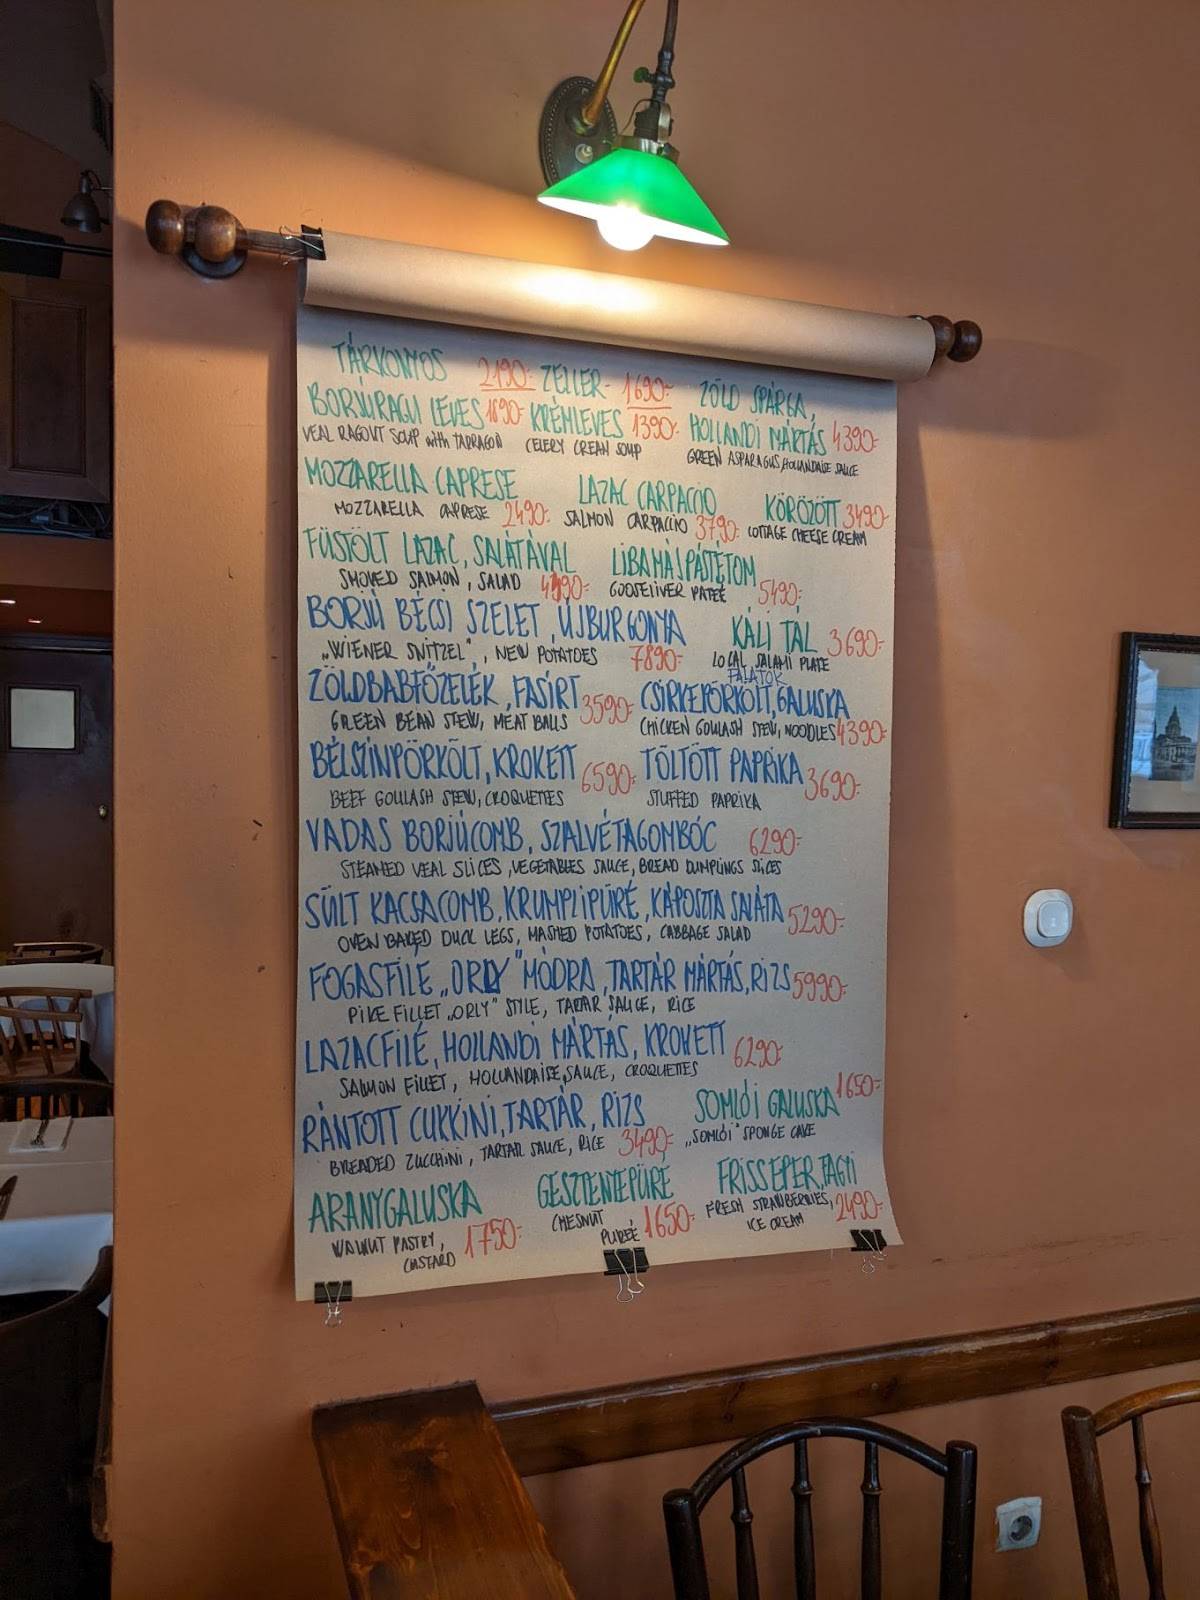 TÁRKONYOS 2190.- ZELLER- 1690.- ZÖLD SPÁRGA,
BORJÚRAGU LEVES 1890.- KRÉMLEVES 1390.- HOLLANDI MÁRTÁS 4390.-
VEAL RAGOUT SOUP with TARRAGON CELERY CREAM SOUP GREEN ASPARAGUS, HOLLANDAISE SAUCE
MOZZARELLA CAPRESE LAZAC CARPACCIO KÖRÖZÖTT 3490.-
MOZZARELLA CAPRESE 2490.- SALMON CARPACCIO 3790.- COTTAGE CHEESE CREAM
FÜSTÖLT LAZAC, SALÁTÁVAL LIBAMÁJPÁSTÉTOM
SMOKED SALMON, SALAD 4390.- GOOSELIVER PATEÉ 5490.-
BORJÚ BÉCSI SZELET, ÚJBURGONYA KÁLI TÁL 3690.-
„WIENER SNITZEL", NEW POTATOES 7890.- LOCAL SALAMI PLATE
FALATOK
ZÖLDBABFŐZELÉK, FASÍRT 3590.- CSIRKEPÖRKÖLT, GALUSKA
GREEN BEAN STEW, MEAT BALLS CHICKEN GOULASH STEW, NOODLES 4390.-
BÉLSZÍNPÖRKÖLT, KROKETT 6590.- TÖLTÖTT PAPRIKA 3690.-
BEEF GOULASH STEW, CROQUETTES STUFFED PAPRIKA
VADAS BORJÚCOMB, SZALVÉTAGOMBÓC 6290.-
STEAMED VEAL SLICES, VEGETABLES SAUCE, BREAD DUMPLINGS SLICES
SÜLT KACSACOMB, KRUMPLIPÜRÉ, KÁPOSZTA SALÁTA 5290.-
OVEN BAKED DUCK LEGS, MASHED POTATOES, CABBAGE SALAD
FOGASFILÉ „ORLY" MÓDRA, TARTÁR MÁRTÁS, RIZS 5990.-
PIKE FILLET „ORLY" STYLE, TARTAR SAUCE, RICE
LAZACFILÉ, HOLLANDI MÁRTÁS, KROKETT 6290.-
SALMON FILLET, HOLLANDAISE SAUCE, CROQUETTES
RÁNTOTT CUKKINI, TARTÁR, RIZS SOMLÓI GALUSKA 1650.-
BREADED ZUCCHINI, TARTAR SAUCE, RICE 3490.- „SOMLÓI" SPONGE CAKE
ARANYGALUSKA GESZTENYEPÜRÉ FRISS EPER, FAGYI
WALNUT PASTRY, CUSTARD 1750.- CHESNUT PUREÉ 1650.- FRESH STRAWBERRIES, ICE CREAM 2490.-